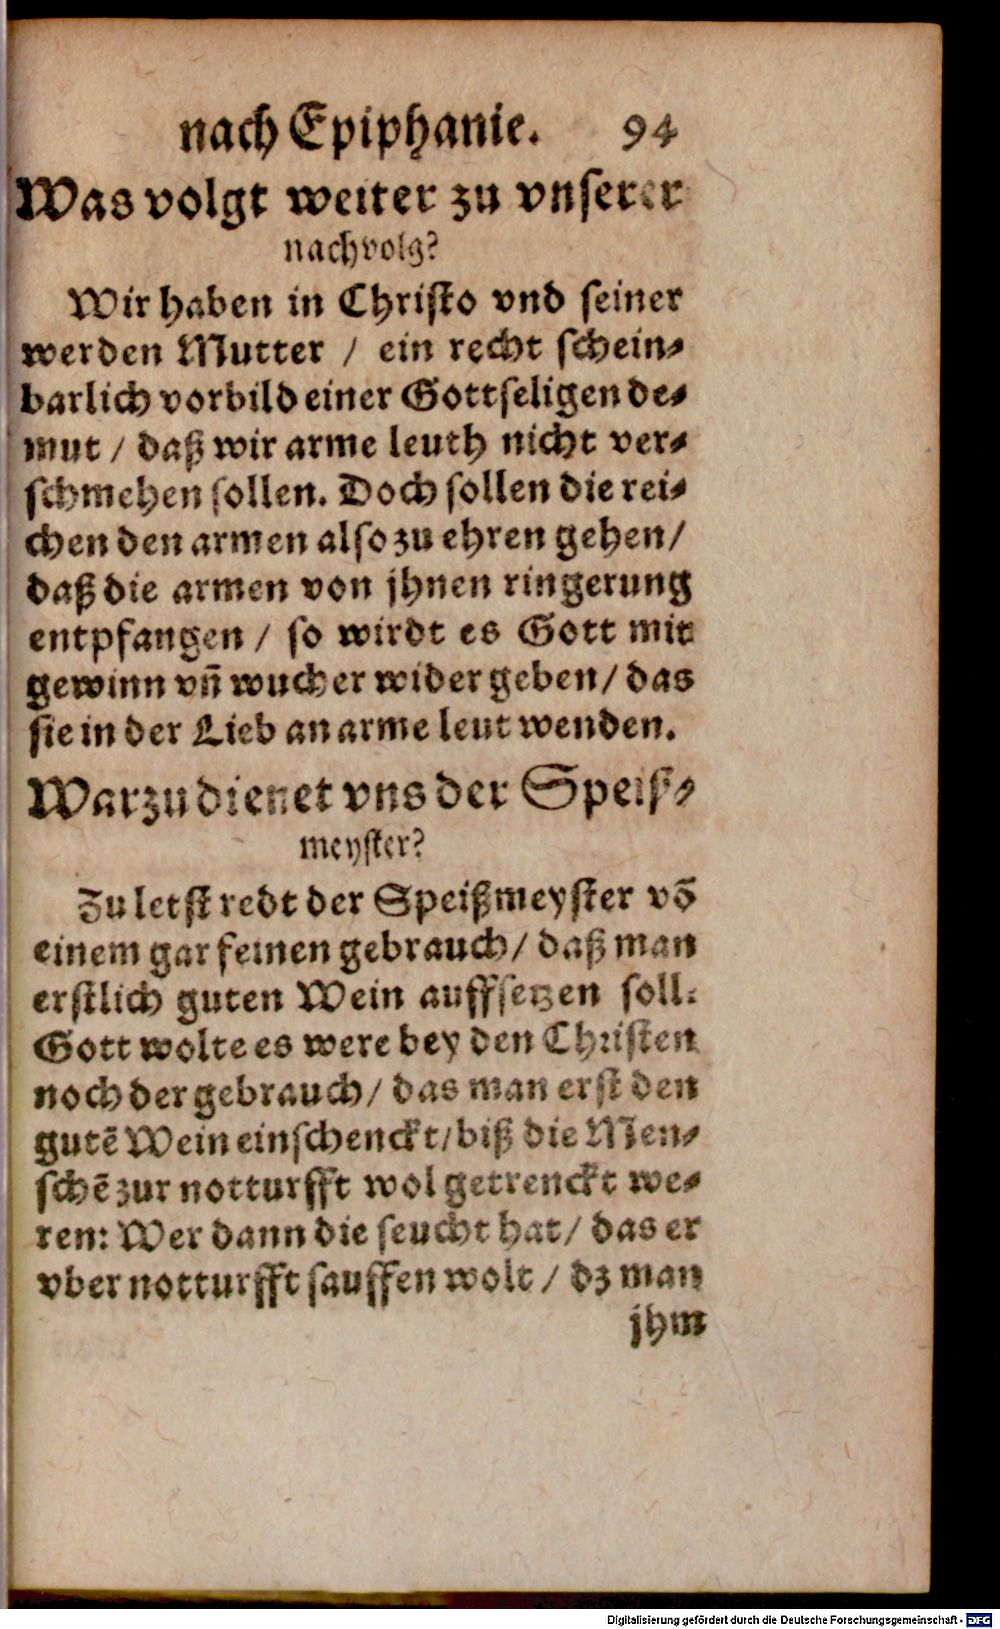 nach Epiphanie. 94
Was volgt weiter zu vnserer
nachvolg?
Wir haben in Christo vnd seiner
werden Mutter / ein recht schein⸗
barlich vorbild einer Gottseligen de⸗
mut / daß wir arme leuth nicht ver⸗
schmehen sollen. Doch sollen die rei⸗
chen den armen also zu ehren gehen /
daß die armen von jhnen ringerung
entpfangen / so wirdt es Gott mit
gewinn vñ wucher wider geben / das
sie in der Lieb an arme leut wenden.
Warzu dienet vns der Speiß⸗
meyster?
Zu letst redt der Speißmeyster võ
einem gar feinen gebrauch / daß man
erstlich guten Wein auffsetzen soll.
Gott wolte es were bey den Christen
noch der gebrauch / das man erst den
gutē Wein einschenckt / biß die Men⸗
schē zur notturfft wol getrenckt we⸗
ren: Wer dann die seucht hat / das er
vber notturfft sauffen wolt / dz man
jhm
Digitalisierung gefördert durch die Deutsche Forschungsgemeinschaft - DFG